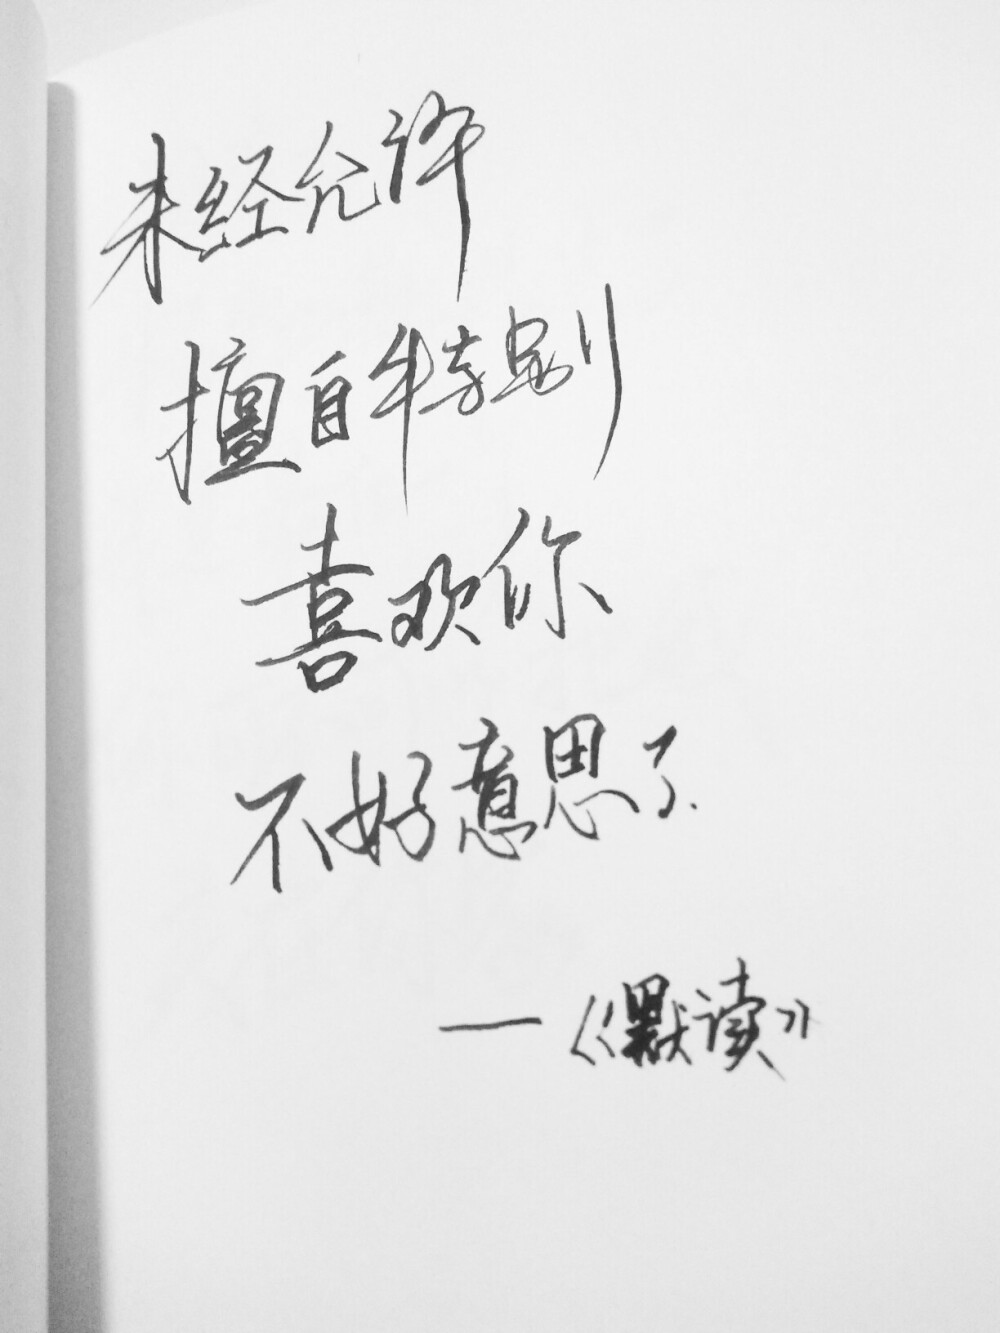 未经允许
擅自特别
喜欢你
不好意思了
—《默读》